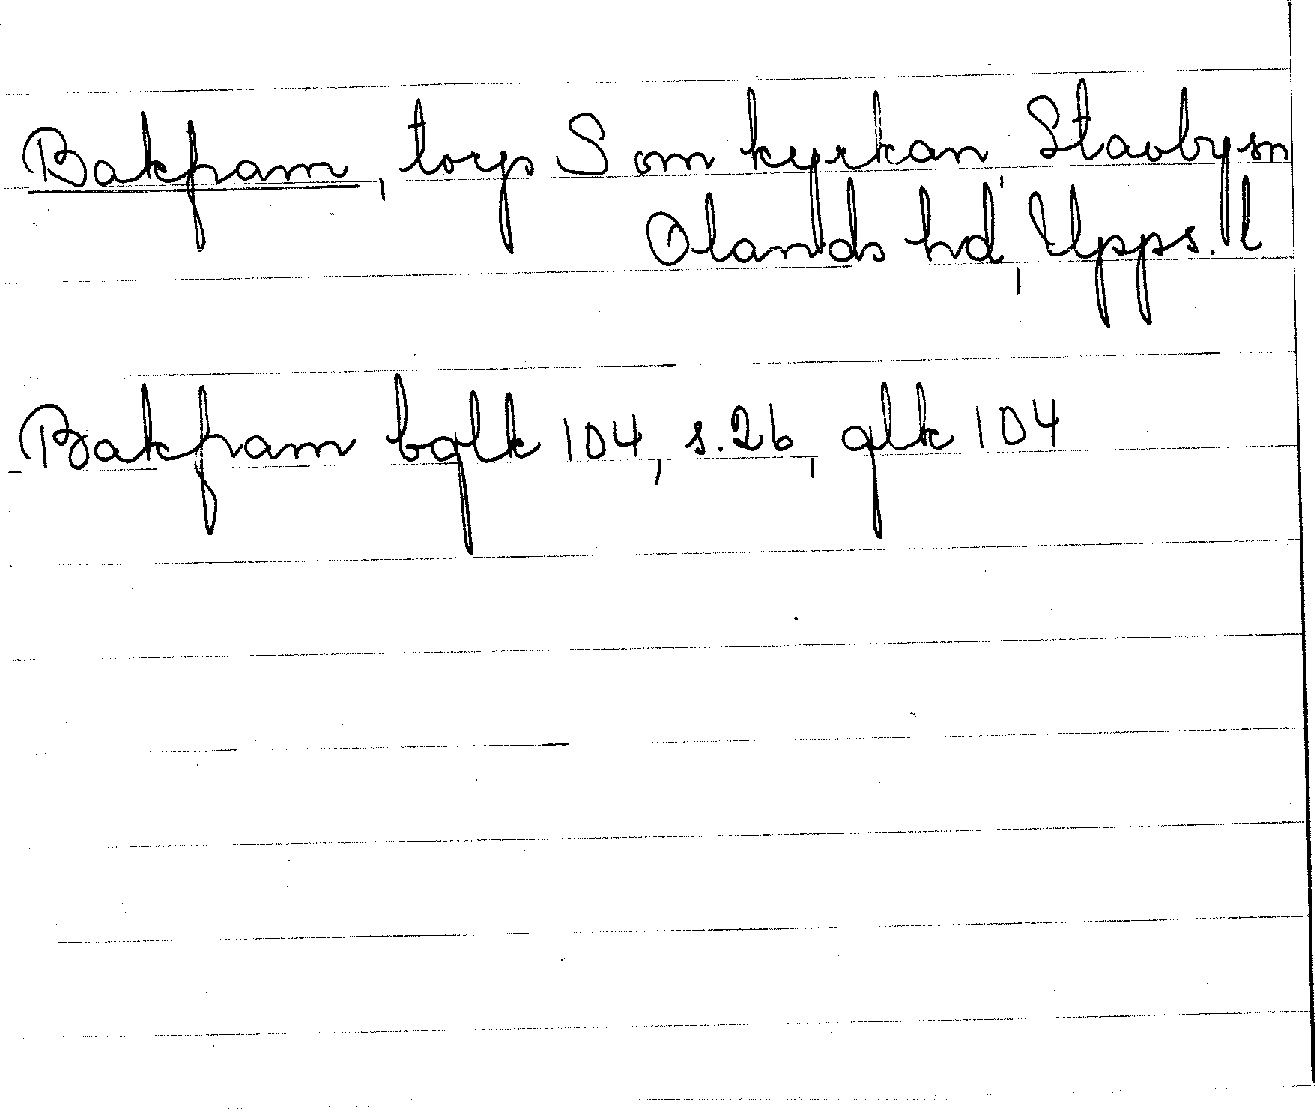 Bakfram, torp S om kyrkan, Stavby sn
Olands hd, Upps. l
Bakfram bglk 104, s. 26, glk 104